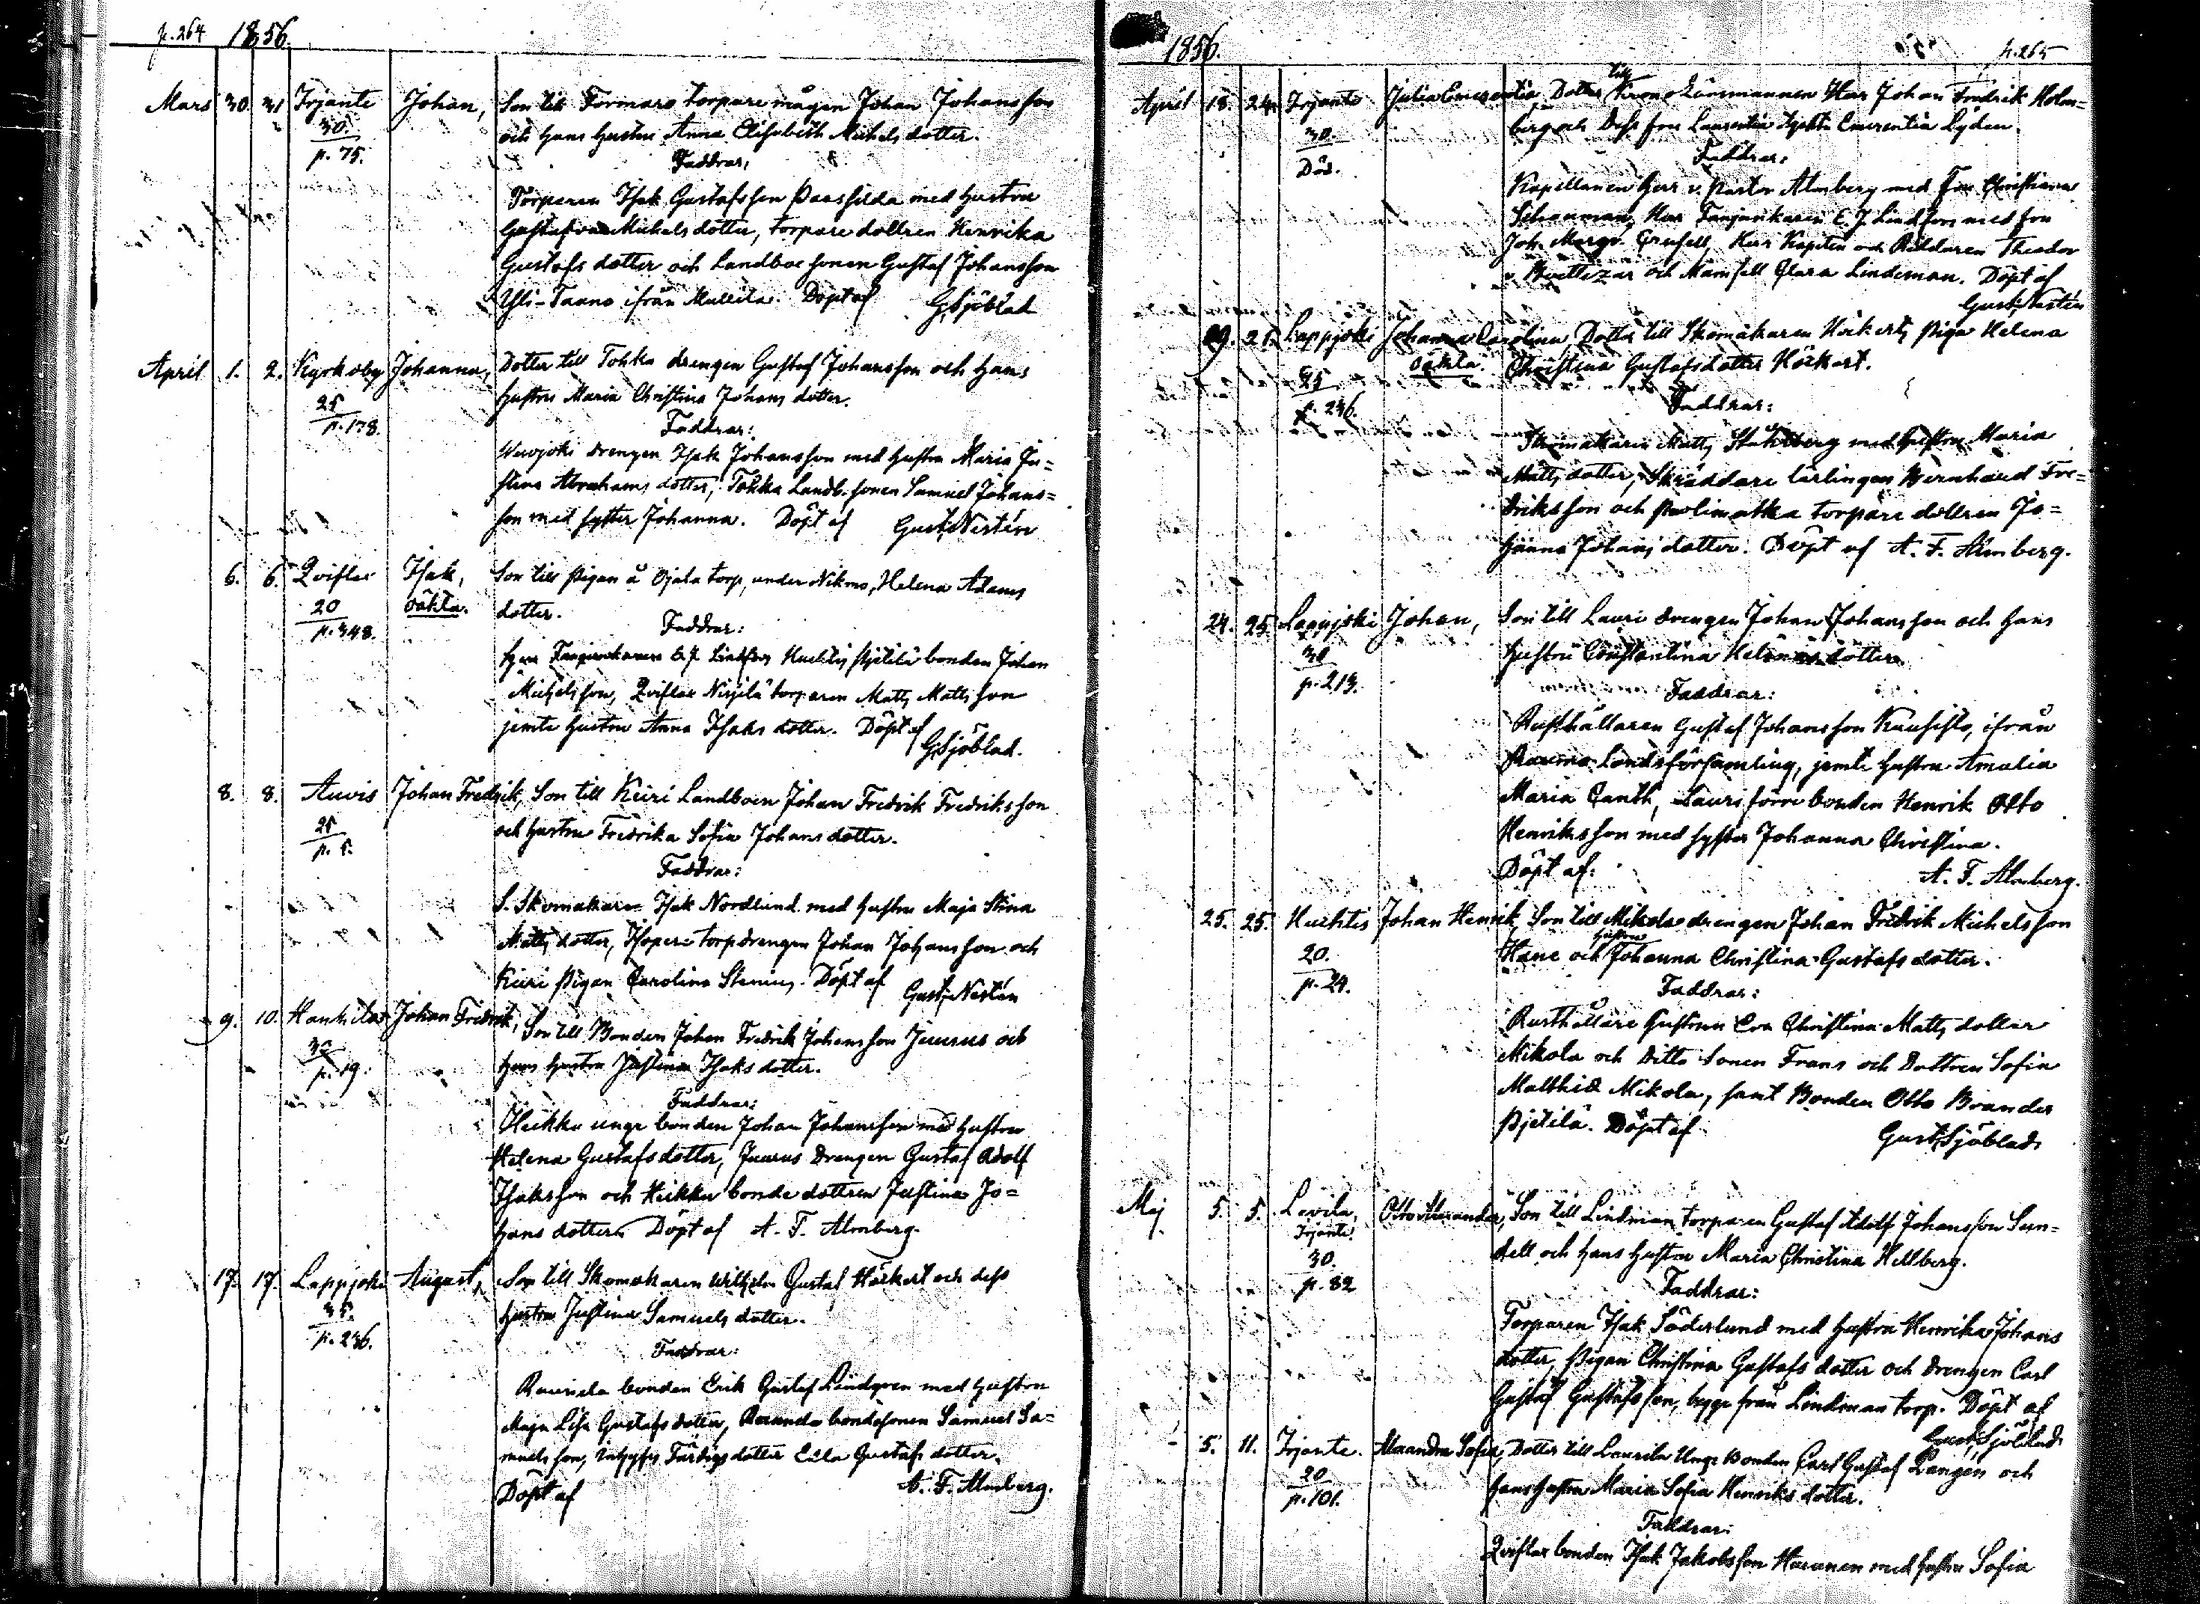 p. 264 1856.
Mars 30. 31 Irjante Johan, Son till Formars torpare mågen Johan Johansson
30. och hans hustru Anna Elisabeth Michels dotter.
p. 75. Faddrar;
Torparen Isak Gustafsson Paassilda med hustru
Gustafva Michels dotter, torpare dottren Henrika
Gustafs dotter och Landboe sonen Gustaf Johansson
Yli-Taano ifrån Mullila. Döpt af G. Sjöblad
April 1. 2. Kyrkoby Johanna, Dotter till Tokka drengen Gustaf Johansson och hans
25 hustru Maria Christina Johans dotter.
p. 178. Faddrar:
Wuojoki drengen Isak Johansson med hustru Maria Ju=
stina Abrahams dotter, Tokka Landb. sonen Samuel Johans=
son med syster Johanna. Döpt af Gust. Nestén
6. 6. Qviflax Isak, Son till pigan å Ojala torp, under Nikmo, Helena Adams
20 oäkta. dotter.
p. 348. Faddrar:
Herr Fanjunkaren C. J. Lindfors Huchtis Pjetilä bonden Johan
Michelsson, Qviflax Nirjilä torparen Matts Mattsson
jemte hustru Anna Isaks dotter. Döpt af
G. Sjöblad.
8. 8. Auvis Johan Fredrik, Son till Keiri Landboen Johan Fredrik Fredriksson
25 och hustru Fredrika Sofia Johans dotter.
p. 5. Faddrar:
S. Skomakaren Isak Nordlund med hustru Maja Stina
Matts dotter, Isopere torpdrengen Johan Johansson och
Keiri Pigan Carolina Stenius. Döpt af Gust. Nestén
9. 10. Hankila Johan Fredrik, Son till Bonden Johan Fredrik Johansson Juurus och
30 hans hustru Justina Isaks dotter.
p. 19. Faddrar:
Heikku unge bonden Johan Johansson med hustru
Helena Gustafs dotter, Juurus Drengen Gustaf Adolf
Isaksson och Heikku bonde dottren Justina Jo=
hans dotter. Döpt af A. F. Almberg.
17. 17. Lappjoki August, Son till Skomakaren Wilhelm Gustaf Höckert och dess
35. hustru Justina Samuels dotter.
p. 236. Faddrar:
Raunela bonden Erik Gustaf Lindqven med hustru
Maja Lisa Gustafs dotter, bondesonen Samuel Sa=
muelsson, dotter Eula Gustafs dotter.
Döpt af A. F. Almberg.
1856. p. 265
April 18. 24. Irjante Julia Emerentia, Dotter till Krono Länsmannen Herr Johan Fredrik Holm=
30. berg och Dess fru Laurentia Emerentia Lyden.
Död. Faddrar:
Kapellanen Herr v. Pastor Almberg med Fru Christiana
Schauman, Herr Fanjunkaren C. J. Lindfors med fru
Joh. Margr. Grusell, Herr Kapiten och Riddaren Theodor
v. och Mamsell Clara Lindeman. Döpt af
Gust. Nestén
19. 25. Lappjoki Johanna Carolina, Dotter till Skomakaren Höckerts Piga Helena
35 oäkta. Christina Gustafsdotter Höckert.
p. 236. Faddrar:
Skomakaren Matts Stahlberg med hustru Maria
Matts dotter, Skräddare lärlingen Bernhard Fre=
driksson och Puolimatka torpare dottren Jo=
hanna Johans dotter. Döpt af A. F. Almberg.
24. 25. Lappjoki Johan, Son till Lauri drengen Johan Johansson och hans
30 hustru Constantina dotter.
p. 213. Faddrar:
Rusthållaren Gustaf Johansson Kausisto, ifrån
Raumo Landsförsamling, jemte hustru Amalia
Maria Canth, Lauri förre bonden Henrik Otto
Henriksson med syster Johanna Christina.
Döpt af: A. F. Almberg.
25. 25. Huchtis Johan Henrik, Son till Mikola drengen Johan Fredrik Michelsson
20. Hane och hustru Johanna Christina Gustafs dotter.
p. 24. Faddrar:
Rusthållare hustrun Eva Christina Matts dotter
Mikola och Ditto Sonen Frans och Dottren Sofia
Malthid Mikola, samt Bonden Otto Brander
Pjetilä. Döpt af Gust. Sjöblad.
Maj 5. 5. Levila, Otto Alexander, Son till Lindman torparen Gustaf Adolf Johansson Sun=
Irjante. dell och hans hustru Maria Christina Hellberg.
30. Faddrar:
p. 82 Torparen Isak Söderlund med hustru Henrika Johans
dotter, Pigan Christina Gustafs dotter och drengen Carl
Gustaf Gustafsson, begge från Lindman torp. Döpt af
Gust. Sjöblad.
5. 11. Irjante. Alexandra Sofia, Dotter till Laurila Unge Bonden Carl Gustaf Langén och
20 hans hustru Maria Sofia Henriks dotter.
p. 101. Faddrar:
Qviflax bonden Isak Jakobsson Haranen med hustru Sofia